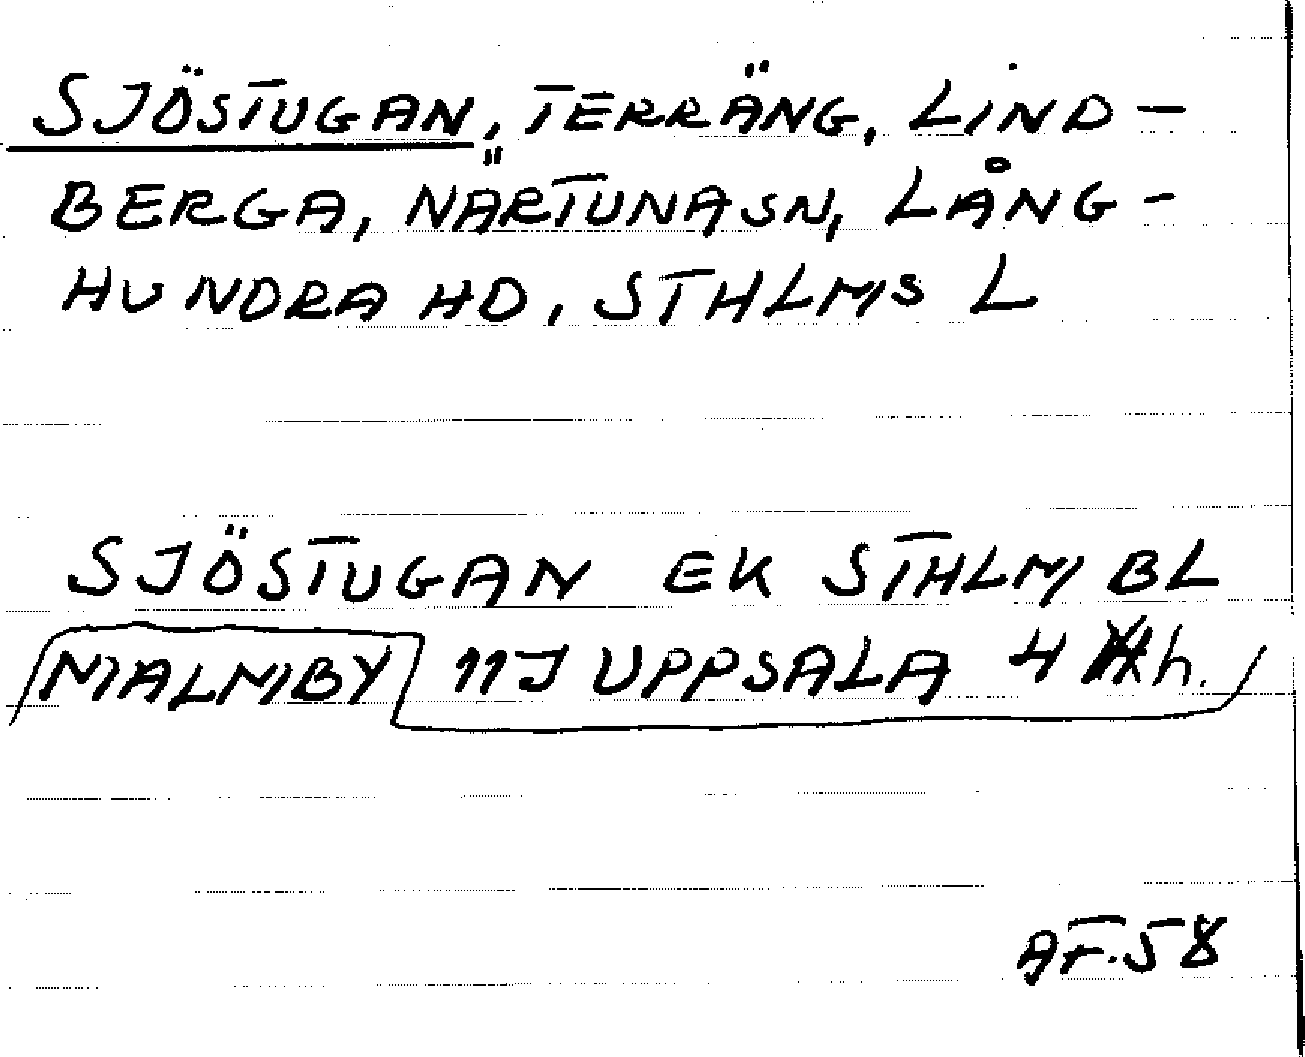 SJÖSTUGAN, TERRÄNG, LIND-
BERGA, NÄRTUNA SN, LÅNG-
HUNDRA HD, STHLMS L
SJÖSTUGAN EK STHLM BL
MALMBY 11J UPPSALA 4 h.
AF.58